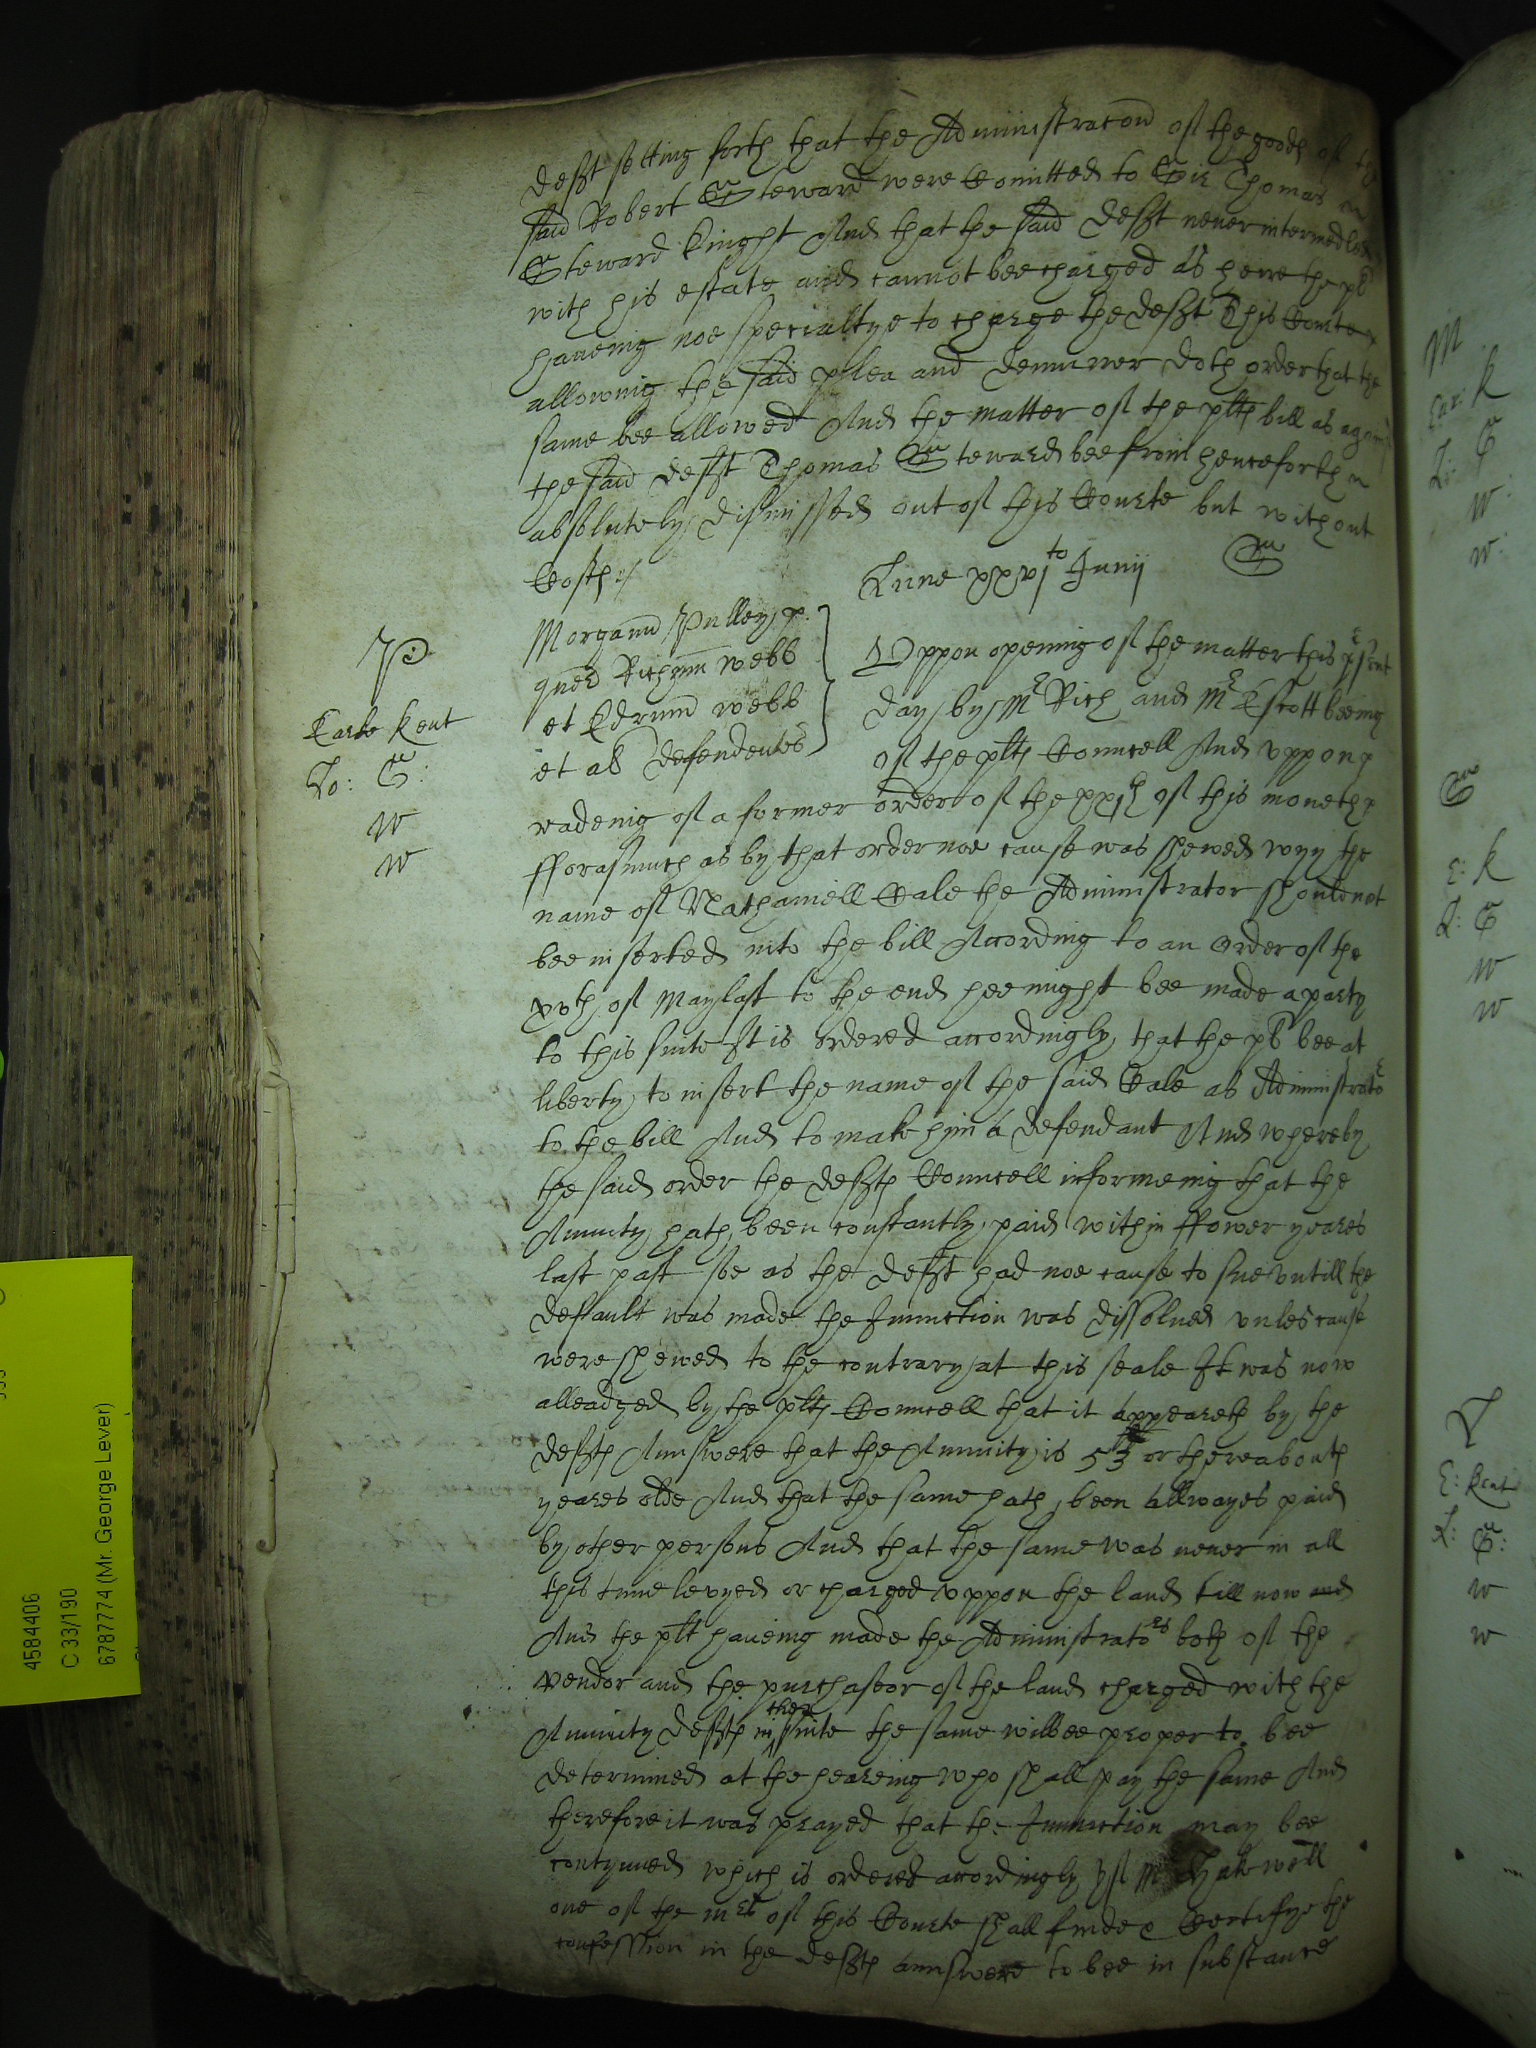 deft setting forth that the Administracon of the goods of the
said Robert Steward were Comitted to Sir Thomas
Steward Knight And that the said deft never intermedled
with his estate and cannot bee charged as heire the pl
haveing noe specialtye to charge the deft This Courte
allowing the said plea and demurrer doth order that the
same bee allowed And the matter of the plts bill as against
the said deft Thomas Steward bee from henceforth
absolutely dismissed out of this Courte but without
Costs
Lune xxvj to Junij
S
P
Earle Kent
Lo: S:
w
w
Morgann Pulley
quer Richum Webb
et Edrum Webb
et al defendentes
Uppon opening of the matter this psent
day by Mr Rich and Mr Estcott beeing
of the plts Councell And uppon
readeing of a former order of the xxjth of this moneth
fforasmuch as by that order noe cause was shewed why the
name of Nathaniell Cale the Administrator should not
bee inserted into the bill According to an Order of the
xvth of May last to the end hee might bee made a party
to this suite It is Ordered accordingly that the pl bee at
liberty to insert the name of the said Cale as Administrator
to the bill And to make hym a defendant And whereby
the said order the defts Councell informeing that the
Annuity hath been constantly paid within ffower yeares
last past soe as the deft had noe cause to sue untill the
default was made the Iniunction was dissolued unles cause
were shewed to the contrary at this seale It was now
alleadged by the plts Councell that it appeareth by the
defts Aunswere that the Annuity is 53 or thereabouts
yeares olde And that the same hath been allwayes paid
by other persons And that the same was never in all
this time levyed or charged uppon the land till now and
And the plt haveing made the Administrators both of the
Vendor and the purchaseor of the land charged with the
Annuity defts in ther suite the same wilbee proper to bee
determined at the heareing who shall pay the same And
therefore it was prayed that the Iniunction may bee
contynued which is ordered accordingly yf Mr Hakewell
one of the mrs of this Courte shall finde & Certifye the
confession in the defts aunswere to bee in substance
M
Ear: K
L: S
w
w:
S
E: K
L: S
w
w
L
E: Kent
L: S:
w
w
4584406
C 33/190
6787774 (Mr. George Lever)